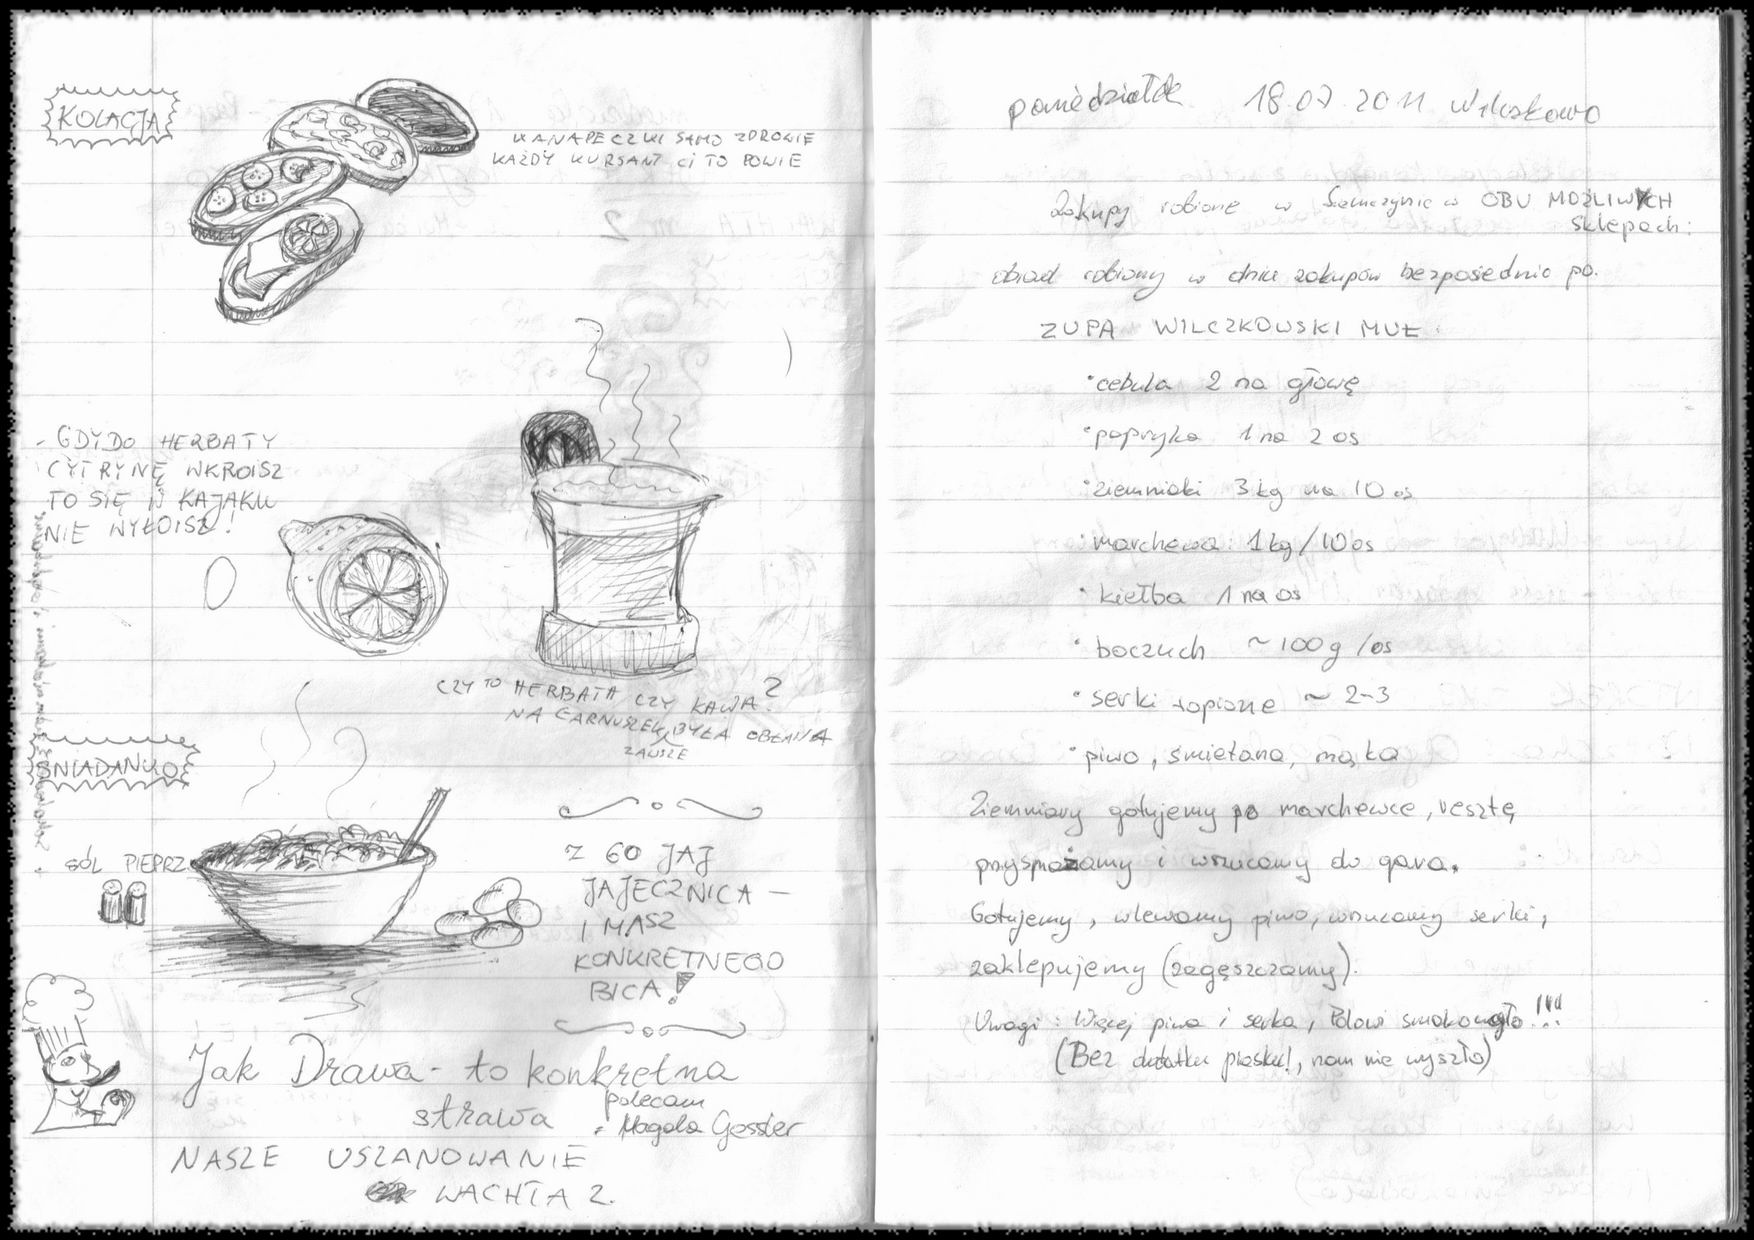 KOLACJA
KANAPECZKI SAMO ZDROWIE
KAŻDY KURSANT CI TO POWIE
- GDY DO HERBATY
CYTRYNĘ WKROISZ
TO SIĘ W KAJAKU
NIE WYŁOISZ!
CZY TO HERBATA CZY KAWA?
NA GARNUSZEK BYŁA OBŁAWA
ZAWSZE
ŚNIADANKO
SÓL PIEPRZ
Z 60 JAJ
JAJECZNICA —
I MASZ
KONKRETNEGO
BICA!
Jak Drawa - to konkretna
strawa
polecam
Magda Gessler
NASZE USZANOWANIE
WACHTA 2.
poniedziałek 18.07.2011 Wilczkowo
Zakupy robione w Siemczynie w OBU MOŻLIWYCH
sklepach:
obiad robiony w dniu zakupów bezpośednio po.
ZUPA WILCZKOWSKI MUŁ.
• cebula 2 na głowę
• papryka 1 na 2 os
• ziemniaki 3 kg na 10 os
• marchewa: 1 kg/10 os
• kiełba 1 na os
• boczuch ~ 100 g /os
• serki topione ~ 2-3
• piwo, śmietana, mąka
Ziemniory gotujemy po marchewce, resztę
przysmażamy i wrzucamy do gara.
Gotujemy, wlewamy piwo, wrzucamy serki,
zaklepujemy (zagęszczamy).
Uwagi: Więcej piwa i serka, smakowało!!!
(Bez dodatku piasku!, nam nie wyszło)